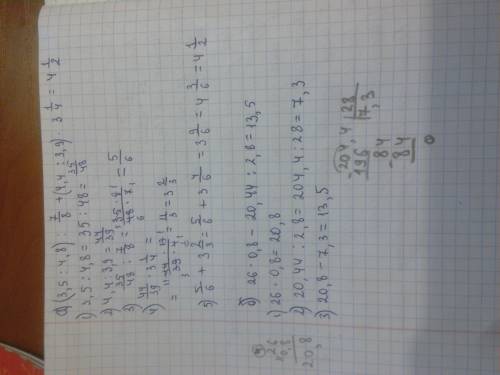 а) (3,5 : 4,8) : 7/8 + (4,4 : 3,9) · 3 1/4 = 4 1/2
1) 3,5 : 4,8 = 35 : 48 = 35/48
2) 4,4 : 3,9 = 44/39
3) 35/48 : 7/8 = 35 · 8/48 · 7 = 5/6
4) 44/39 · 3 1/4 =
= 44 · 13/39 · 4 = 11/3 = 3 2/3
5) 5/6 + 3 2/3 = 5/6 + 3 4/6 = 3 9/6 = 4 3/6 = 4 1/2
б) 26 · 0,8 - 20,44 : 2,8 = 13,5
1) 26 · 0,8 = 20,8
2) 20,44 : 2,8 = 204,4 : 28 = 7,3
3) 20,8 - 7,3 = 13,5
26
0,8
20,8
204,4 28
196 7,3
84
84
0